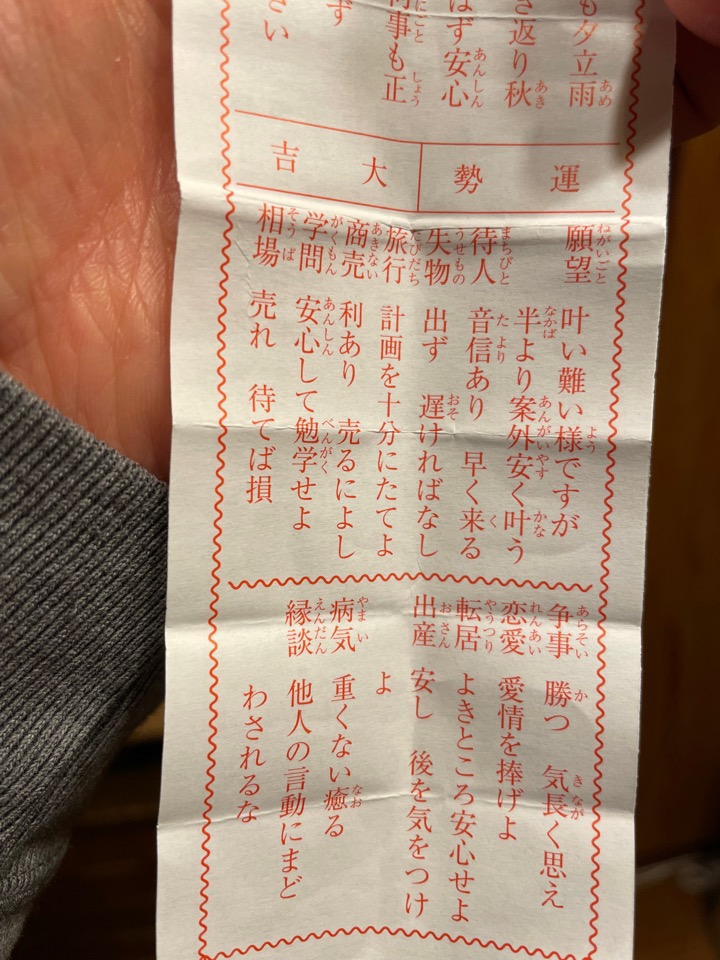 も夕立雨
き返り秋
はず安心
何事も正
ず
さい
運勢 大吉
願望 叶い難い様ですが
半より案外安く叶う
待人 音信あり 早く来る
失物 出ず 遅ければなし
旅行 計画を十分にたてよ
商売 利あり 売るによし
学問 安心して勉学せよ
相場 売れ 待てば損
争事 勝つ 気長く思え
恋愛 愛情を捧げよ
転居 よきところ安心せよ
出産 安し 後を気をつけ
よ
病気 重くない癒る
縁談 他人の言動にまど
わされるな